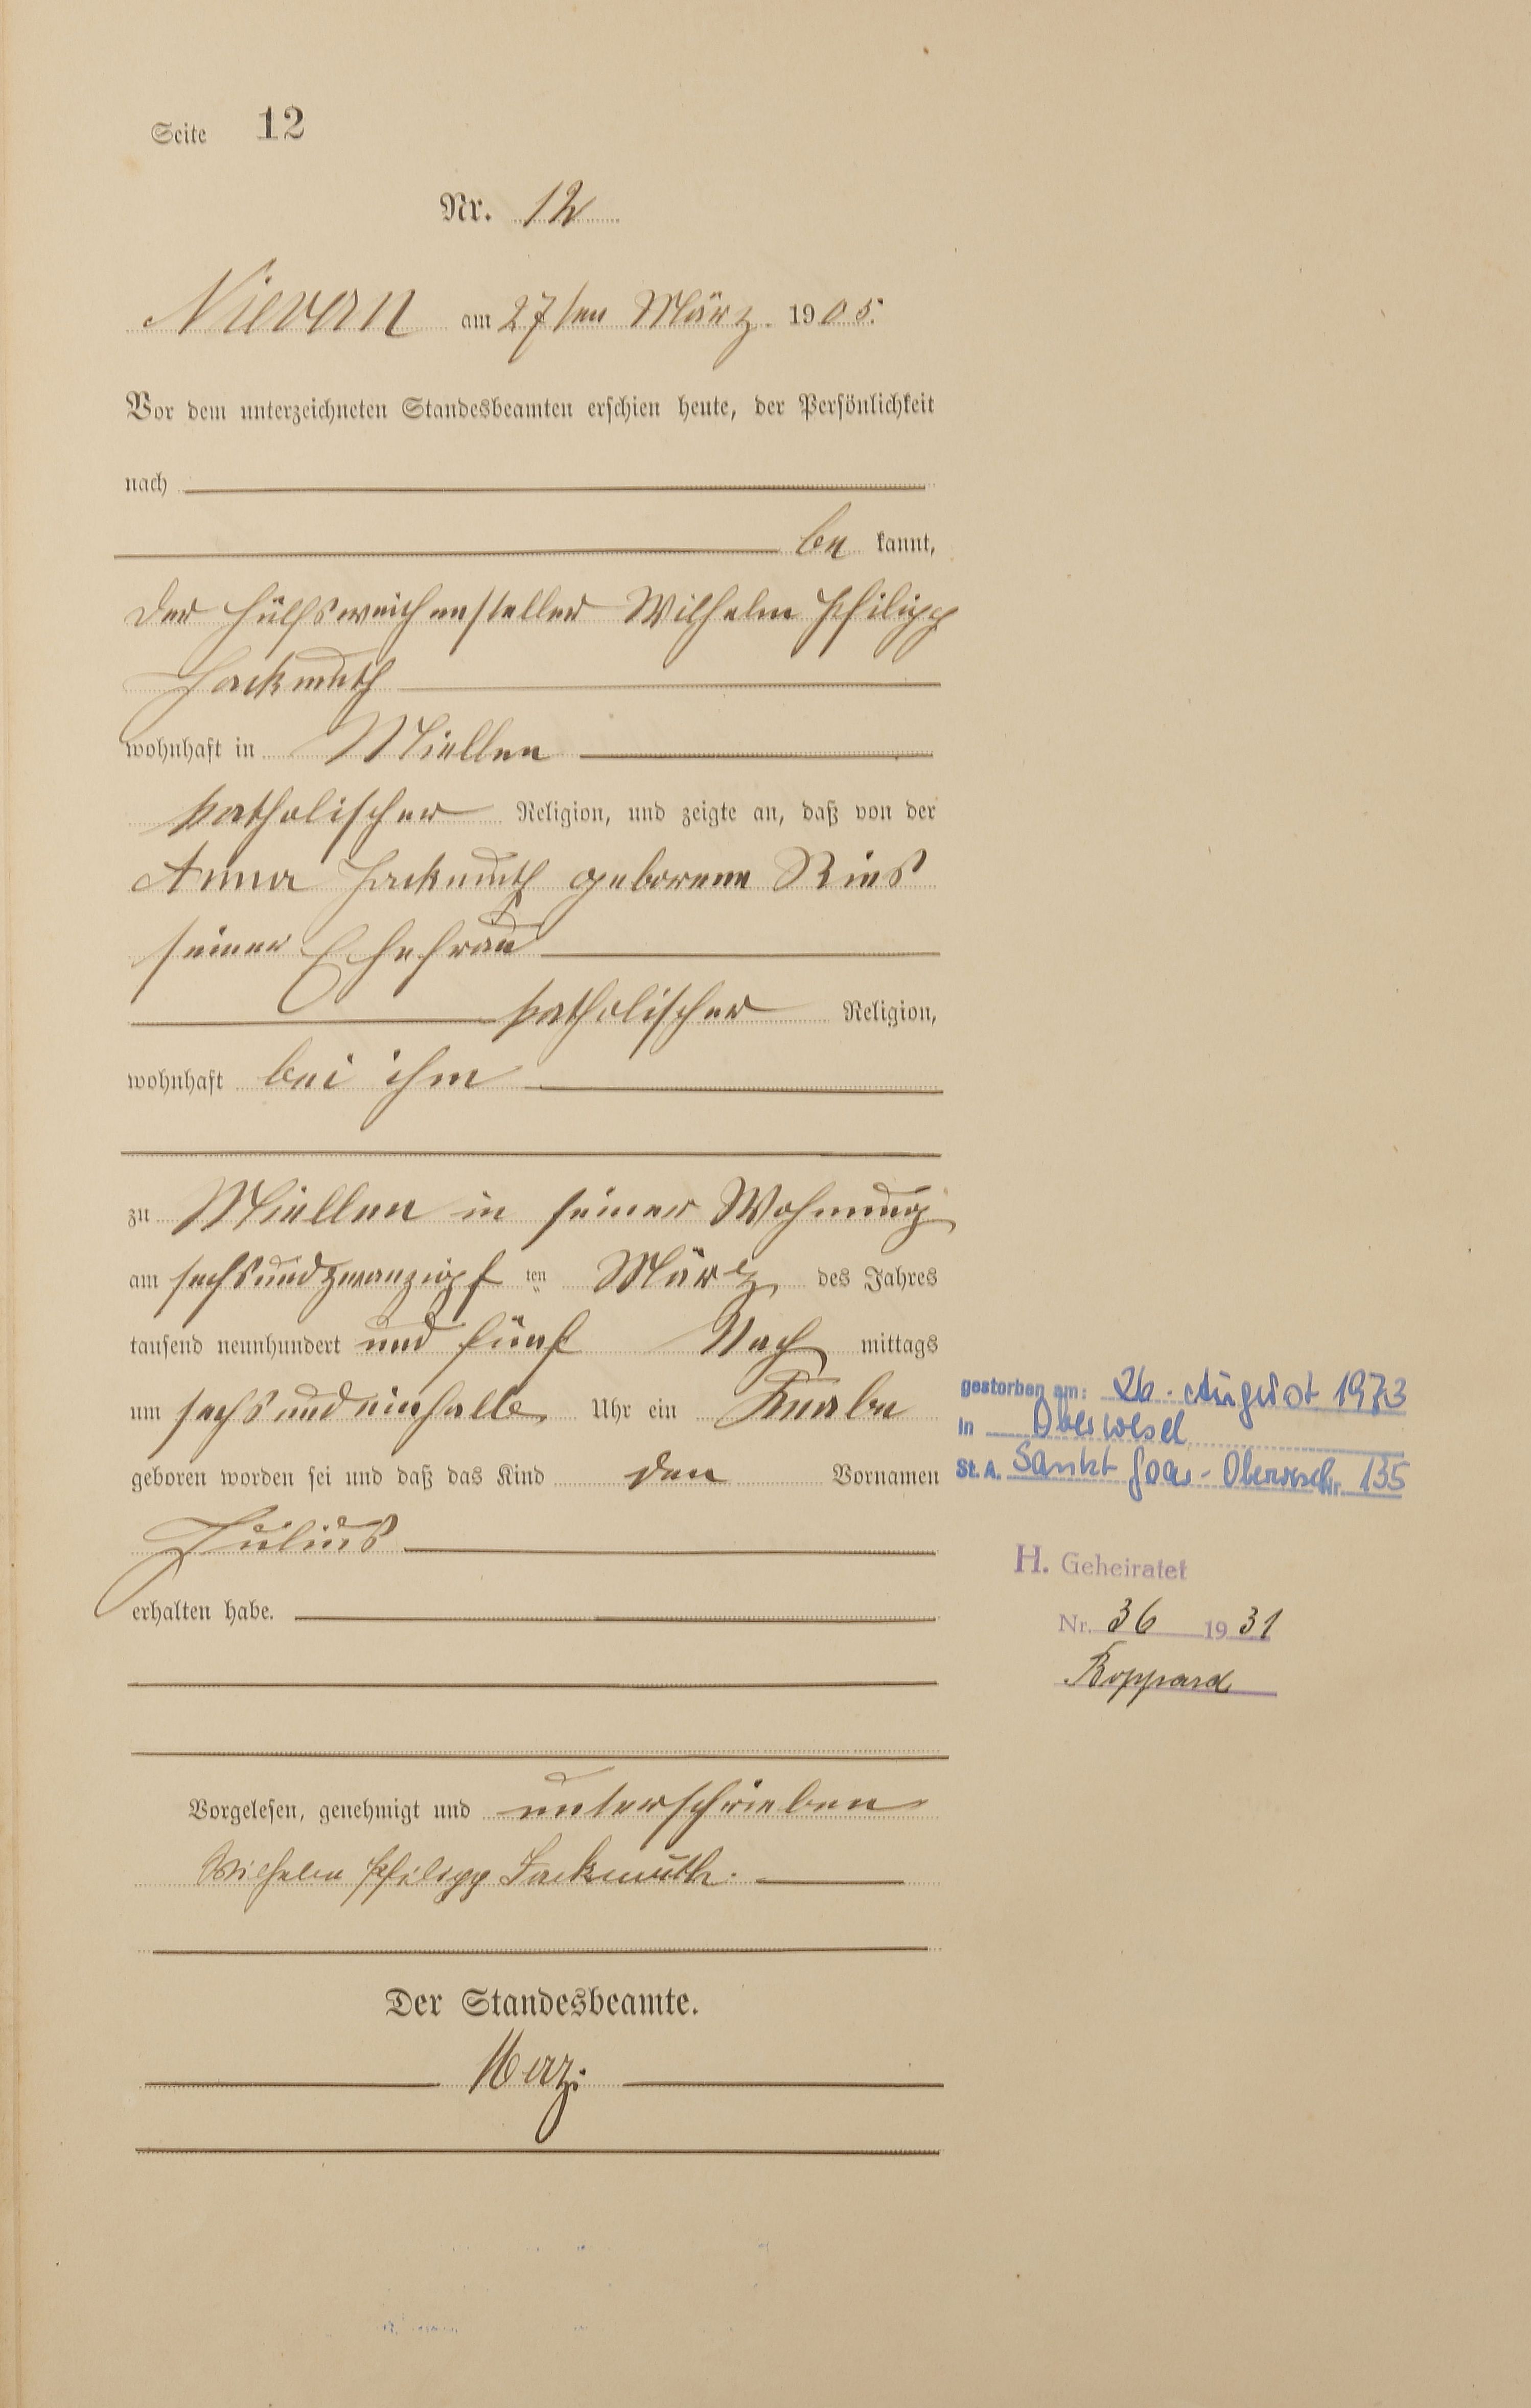 Seite 12
Nr. 12
Nievern am 27ten März 1905.
Vor dem unterzeichneten Standesbeamten erschien heute, der Persönlichkeit
nach
be kannt,
der Hülfsweichensteller Wilhelm Philipp
Jackmuth
wohnhaft in Miellen
katholischer Religion, und zeigte an, daß von der
Anna Jackmuth geborene Ries
seiner Ehefrau
katholischer Religion,
wohnhaft bei ihm
zu Miellen in seiner Wohnung
am sechsundzwanzigs ten März des Jahres
tausend neunhundert und fünf Nach mittags
um sechs und einhalb Uhr ein Knabe
geboren worden sei und daß das Kind den Vornamen
Julius
erhalten habe.
Vorgelesen, genehmigt und unterschrieben
Wilhelm Philipp Jackmuth.
Der Standesbeamte.
gestorben am: 26. August 1973
in Oberwesel
St. A. Sankt Goar-Oberwesel Nr. 135
H. Geheiratet
Nr. 36 1931
Boppard